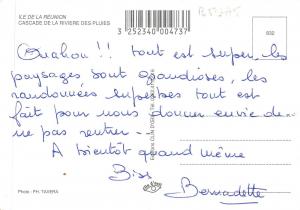 ILE DE LA RÉUNION
CASCADE DE LA RIVIERE DES PLUIES
3 252340 004737
932
Ouahou !! tout est super, les
paysages sont grandioses, les
randonnées superbes tout est
fait pour nous donner envie de
ne pas rentrer -
A bientôt quand même
Bises
Bernadette
Photo : PH. TAVERA